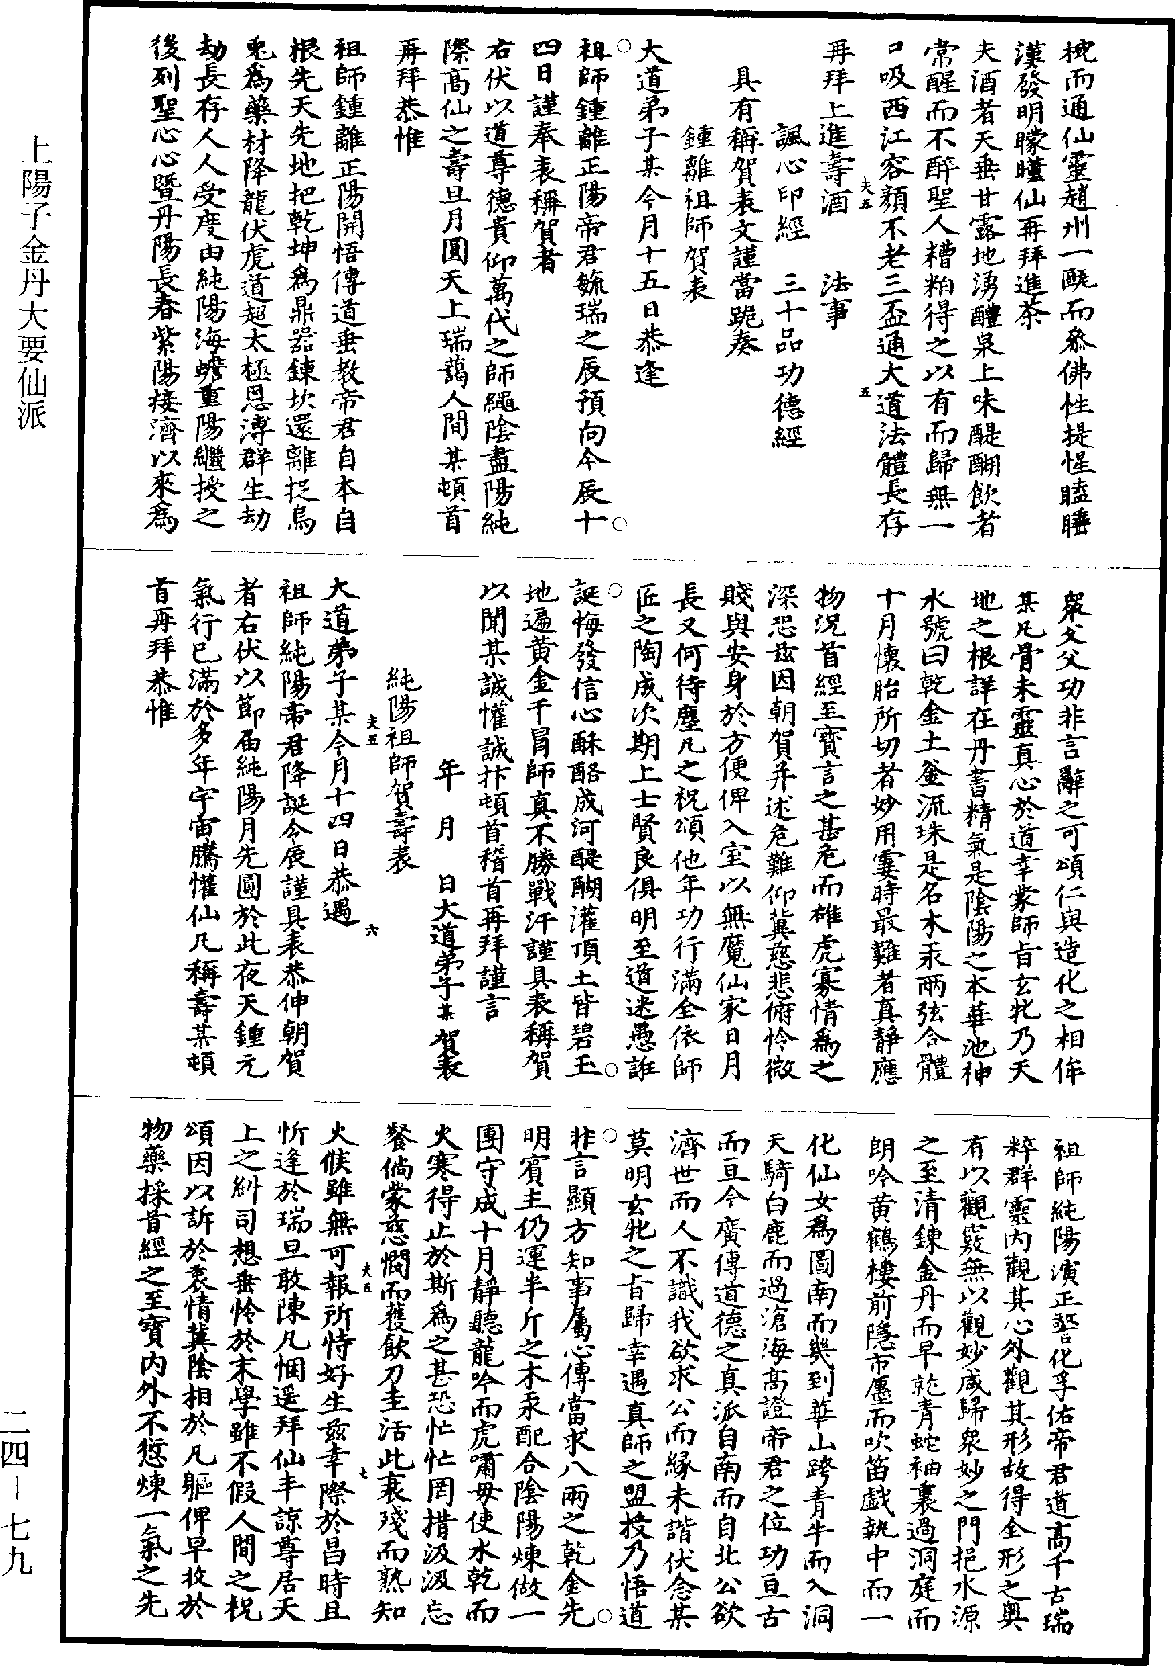 上陽子金丹大要仙派
椀而通仙靈趙州一甌而叅佛性提惺瞌睡
漢發明矇瞳仙再拜進茶
夫酒者天垂甘露地湧醴泉上味醍醐飲者
常醒而不醉聖人糟粕得之以有而歸無一
口吸西江容顏不老三盃通大道法體長存
再拜上進壽酒　法事
夫五　五
諷心印經　三十品功德經
具有稱賀表文謹當跪奏
鍾離祖師賀表
大道弟子某今月十五日恭逢
祖師鍾離正陽帝君毓瑞之辰預向今辰十
四日謹奉表稱賀者
右伏以道尊德貴仰萬代之師繩陰盡陽純
際高仙之壽旦月圓天上瑞藹人間某頓首
再拜恭惟
祖師鍾離正陽開悟傳道垂教帝君自本自
根先天先地把乾坤為鼎器鍊坎還離捉烏
兎為藥材降龍伏虎道超太極恩溥群生劫
劫長存人人受度由純陽海蟾重陽繼授之
後列聖心心暨丹陽長春紫陽接濟以來為
衆父父功非言辭之可頌仁與造化之相侔
某凡骨未靈真心於道幸蒙師旨玄牝乃天
地之根詳在丹書精氣是陰陽之本華池神
水號曰乾金土釜流珠是名木汞兩弦合體
十月懷胎所切者妙用霎時最難者真靜應
物況首經至寶言之甚危而雄虎寡情為之
深恐兹因朝賀并述危難仰冀慈悲俯怜微
賤與安身於方便俾入室以無魔仙家日月
長又何待塵凡之祝頌他年功行滿全依師
匠之陶成次期上士賢良俱明至道迷愚誑
誕悔發信心酥酪成河醍醐灌頂土皆碧玉
地遍黃金干冒師真不勝戰汗謹具表稱賀
以聞某誠懽誠抃頓首稽首再拜謹言
年　月　日大道弟子某賀表
純陽祖師賀壽表
夫五　六
大道弟子某今月十四日恭遇
祖師純陽帝君降誕今辰謹具表恭伸朝賀
者右伏以節届純陽月先圓於此夜天鍾元
氣行已滿於多年宇宙騰懽仙凡稱壽某頓
首再拜恭惟
祖師純陽演正警化孚佑帝君道高千古瑞
粹群靈內觀其心外觀其形故得全形之輿
有以觀竅無以觀妙咸歸衆妙之門挹水源
之至清鍊金丹而早乾青蛇袖裏過洞庭而
朗吟黃鶴樓前隱市廛而吹笛戲執中而一
化仙女為圖南而幾到華山跨青牛而入洞
天騎白鹿而過滄海高證帝君之位功亘古
而亘今廣傳道德之真派自南而自北公欲
濟世而人不識我欲求公而緣未諧伏念某
莫明玄牝之旨歸幸遇真師之盟授乃悟道
非言顯方知事屬心傳當求八兩之乾金先
明賓主仍運半斤之木汞配合陰陽煉做一
團守成十月靜聽龍吟而虎嘯毋使水乾而
火寒得止於斯為之甚恐忙忙罔措汲汲忘
餐倘蒙慈憫而獲飲刀圭活此衰殘而熟知
夫五　七
火候雖無可報所恃好生兹幸際於昌時且
忻逢於瑞旦敢陳凡悃遥拜仙丰諒尊居天
上之糾司想垂怜於末學雖不假人間之祝
頌因以訴於衷情冀陰相於凡軀俾早收於
物藥採首經之至寶內外不愆煉一氣之先
二四—七九